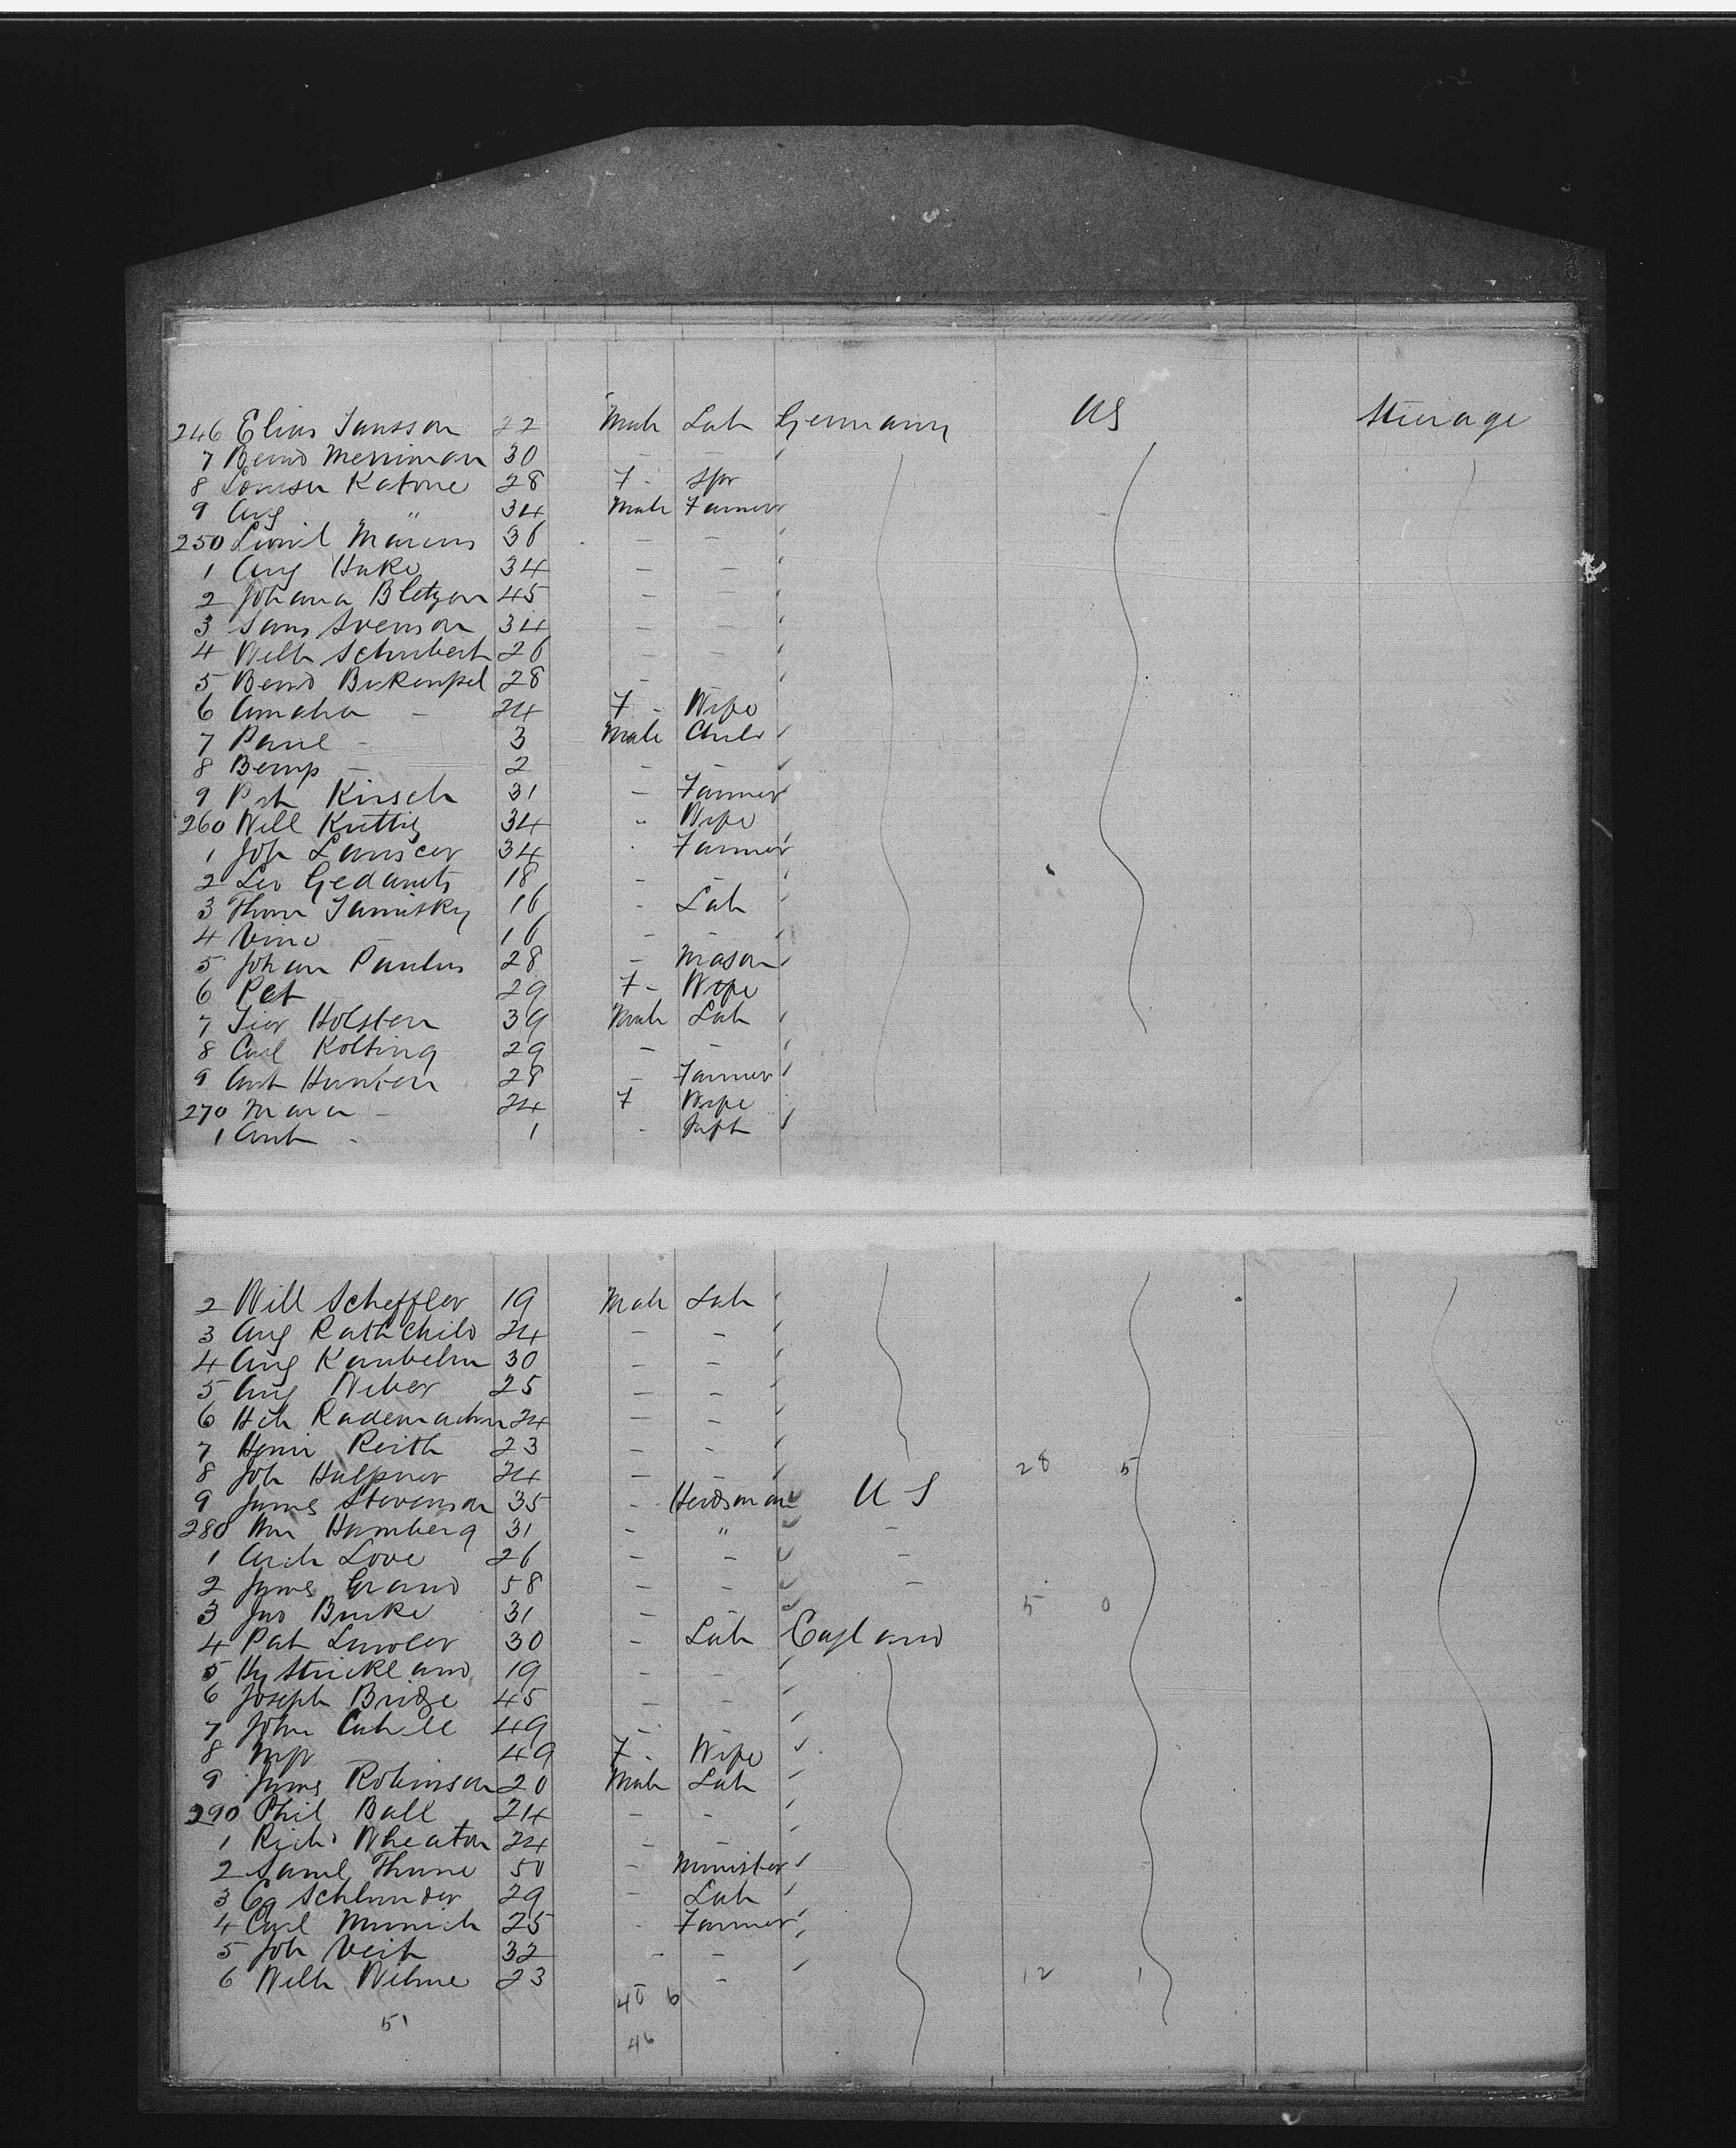 246 Elias Jansson 22 Male Lab Germany US Steerage
7 Bernd Merriman 30 - -
8 Louisa Katone 28 F - Spr
9 Aug " 34 Male Farmer
250 Marcus 36 - -
1 Aug Hake 34 - -
2 Johana Bletzen 45 - -
3 Svenson 34 - -
4 Wilh Schubert 26 - -
5 Bernd Bukempel 28 -
6 Amalia - 24 F - Wife
7 Paul - 3 Male Child
8 - 2 - -
9 Kirsch 31 - Farmer
260 Will Kuttig 34 " Wife
1 Joh 34 Farmer
2 Leo 18 - -
3 16 - Lab
4 16 - -
5 Johan Paulus 28 - Mason
6 Pet 29 F - Wife
7 Holsten 39 Male Lab
8 Carl Kolting 29 - -
9 Ant 28 - Farmer
270 Maria - 24 F Wife
1 Ant - 1 - Inft
2 Will Scheffler 19 Male Lab
3 Aug Rathchild 24 - -
4 Aug 30 - -
5 Aug Weber 25 - -
6 Hch Rademacher 24 - -
7 Henri Reith 23 - -
8 Joh Halpner 24 - - 28 5
9 James Stevenson 35 - Herdsman US
280 Wm Hamberg 31 - " -
1 Arch Love 26 - - -
2 James Grand 58 - - -
3 Jno Burke 31 - - 5 0
4 Pat Lawler 30 - Lab England
5 Hy Strickland 19 - -
6 Joseph Bridge 45 - -
7 John Cahill 49 - -
8 49 F - Wife
9 James Robinson 20 Male Lab
290 Phil Ball 24 - -
1 Richd Wheaton 24 - -
2 Saml Thune 50 - Minister
3 Schlunder 29 - Lab
4 Carl Munich 25 - Farmer
5 Joh Veit 32 - -
6 Wilh Wilme 23 - 12 1
40 6
51
46